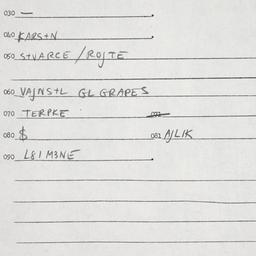 030 —
040 KARS+N
050 S+VARCE / ROJTE
060 VAJNS+L GL GRAPES
070 TERPKE
080 $ 081 AJLIK
090 L81M3NE